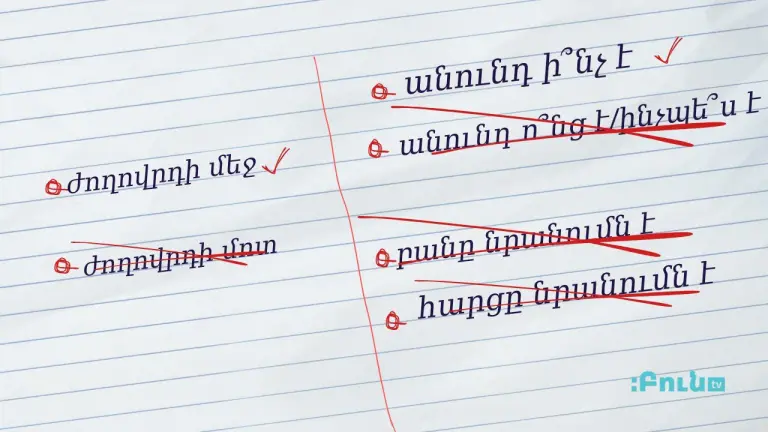 ժողովրդի մեջ
ժողովրդի մոտ
անունդ ի՞նչ է
անունդ ո՞նց է/ինչպե՞ս է
բանը նրանումն է
հարցը նրանումն է
:Բուն tv